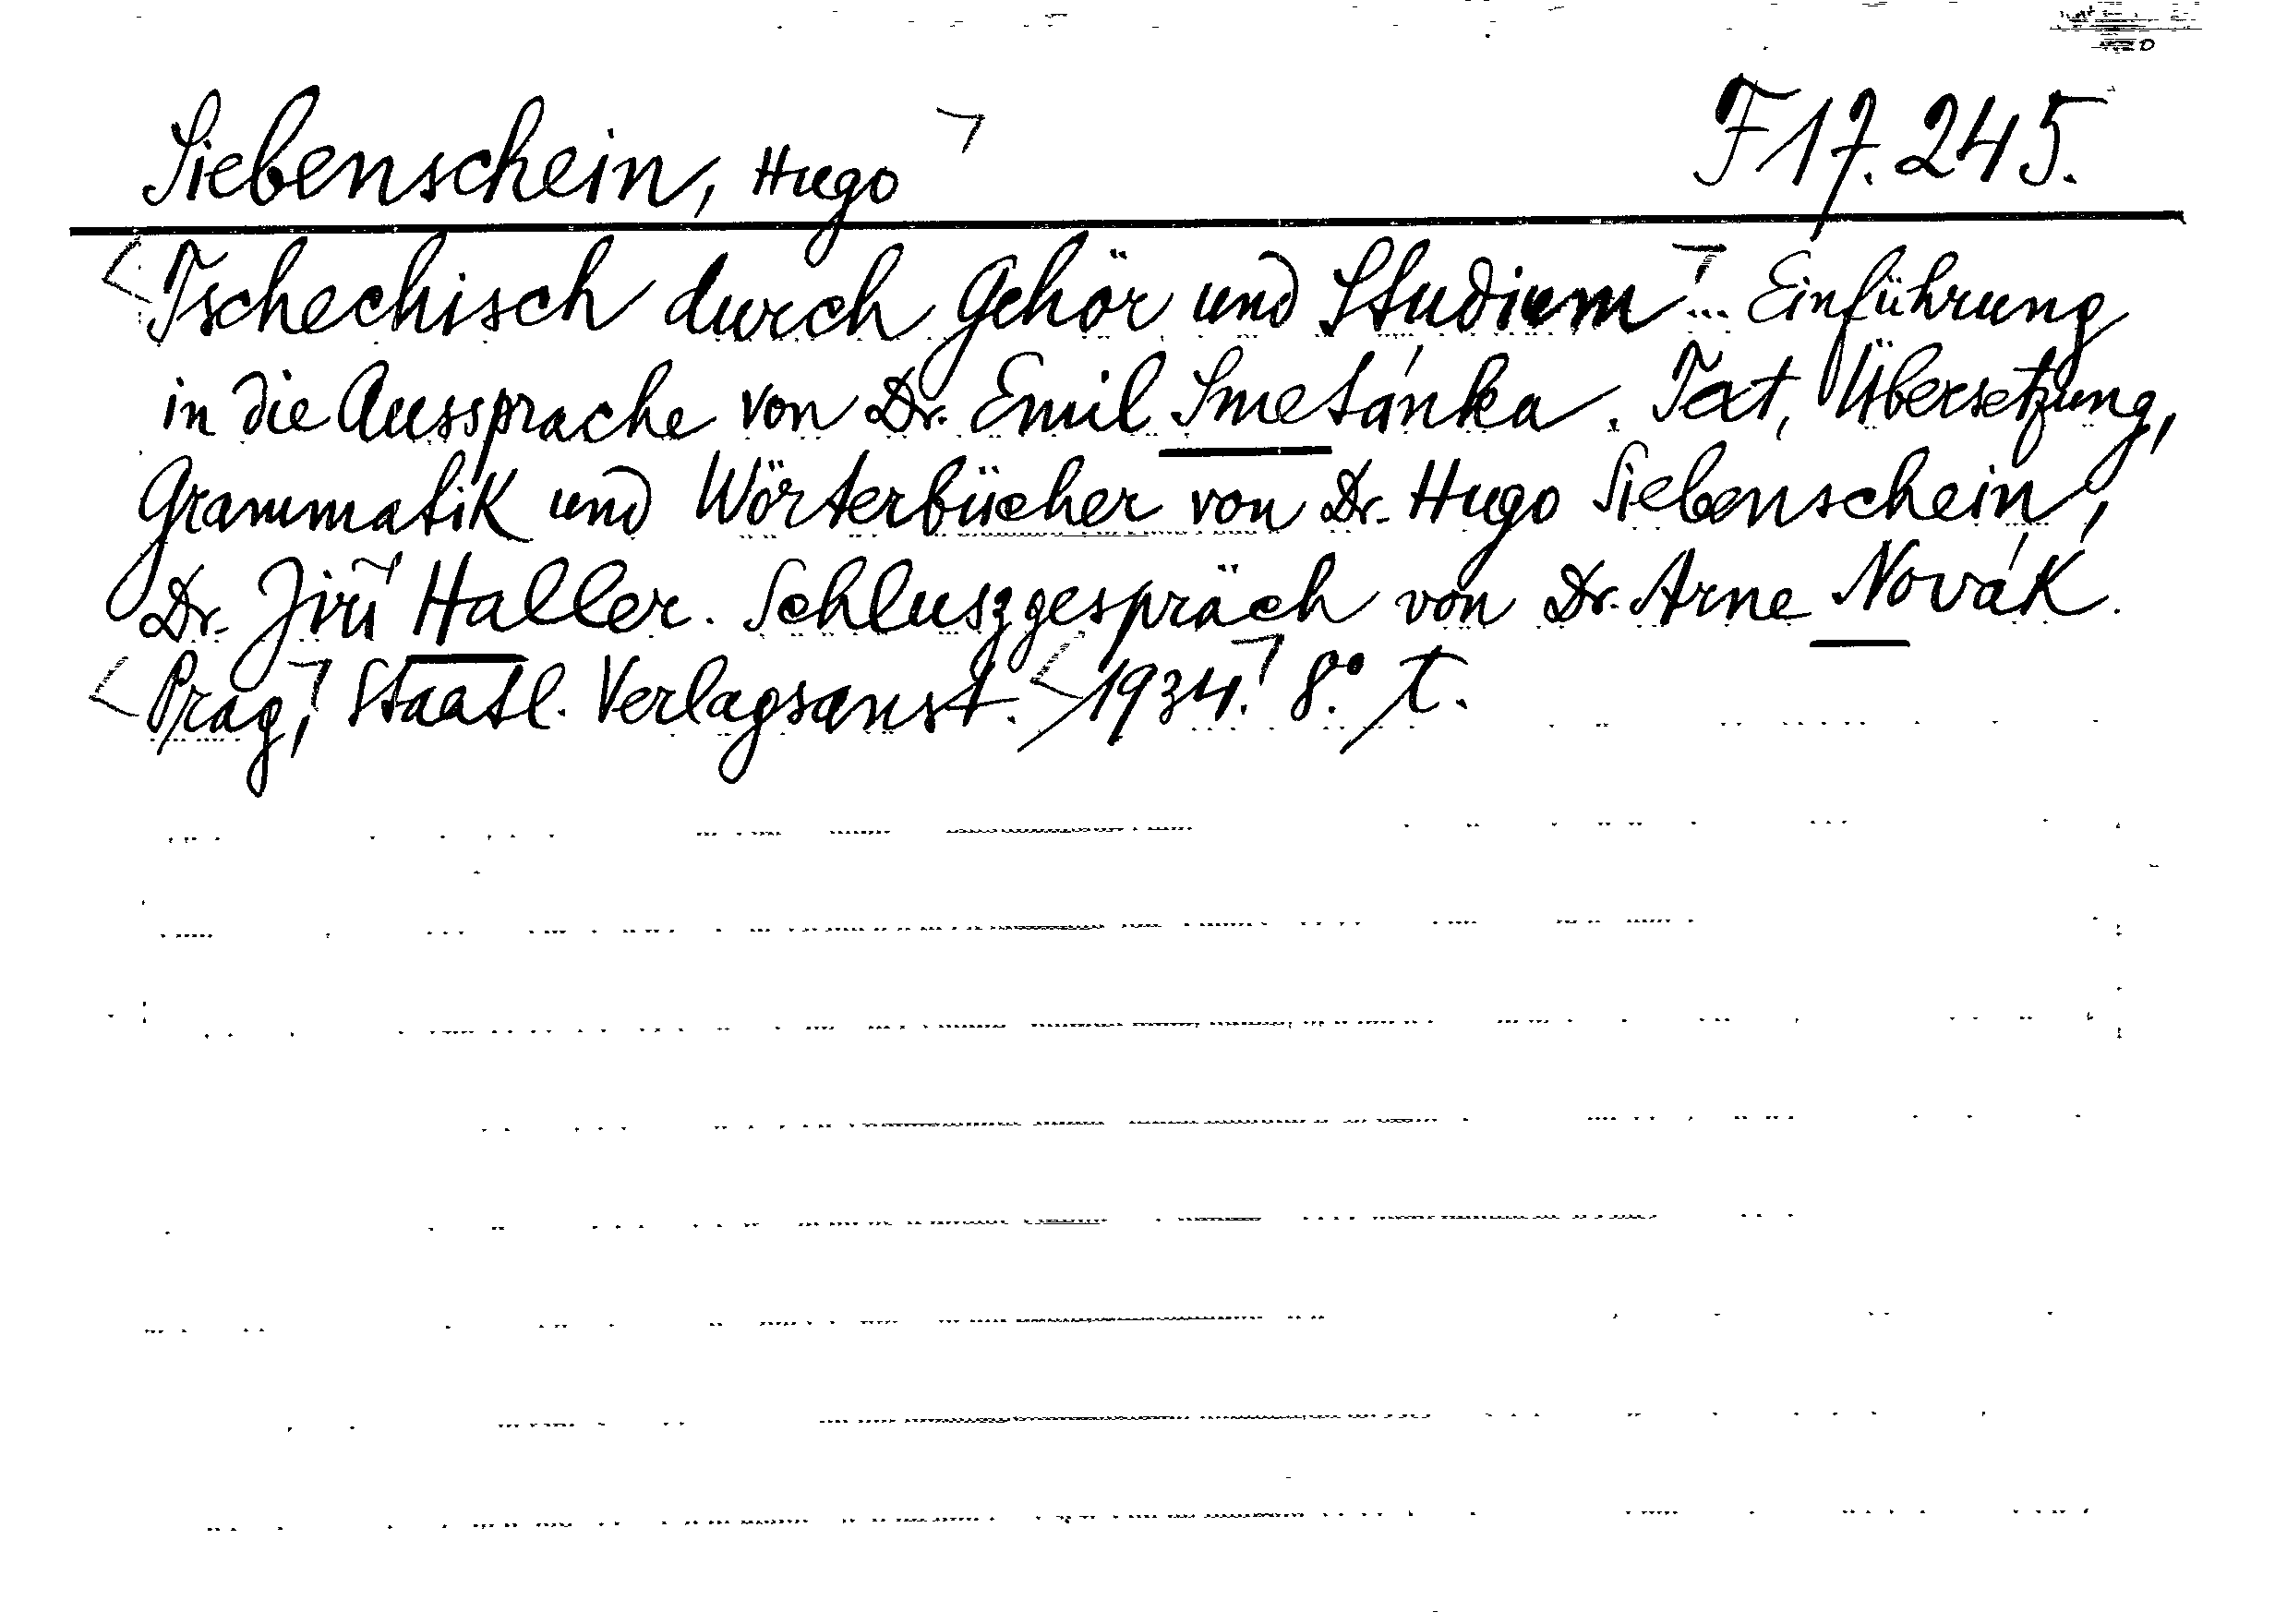 Siebenschein, Hugo F 17.245.
Tschechisch durch Gehör und Studium... Einführung
in die Aussprache von Dr. Emil Smetánka. Text, Übersetzung,
Grammatik und Wörterbücher von Dr. Hugo Siebenschein,
Dr. Jiří Haller. Schluszgespräch von Dr. Arne Novák.
Prag, Staatl. Verlagsanst. 1934. 8° T.